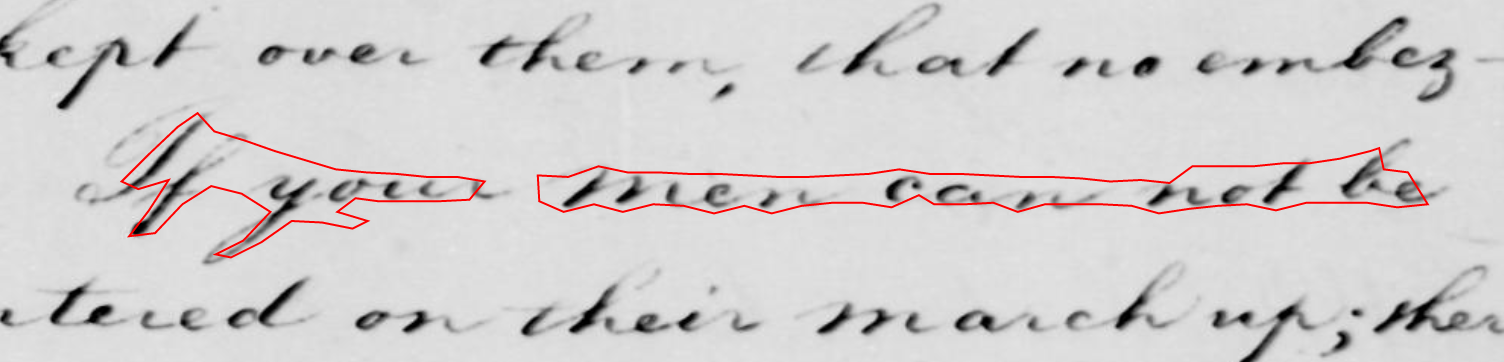 kept over them, that no embez-
If your men can not be
tered on their march up; ther